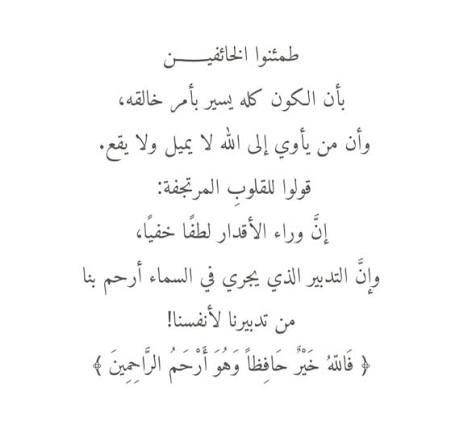 طمئنوا الخائفيـــــن
بأن الكون كله يسير بأمر خالقه،
وأن من يأوي إلى الله لا يميل ولا يقع.
قولوا للقلوبِ المرتجفة:
إنَّ وراء الأقدار لطفًا خفيًا،
وإنَّ التدبير الذي يجري في السماء أرحم بنا
من تدبيرنا لأنفسنا!
﴿ فَاللهُ خَيْرٌ حَافِظاً وَهُوَ أَرْحَمُ الرَّاحِمِينَ ﴾